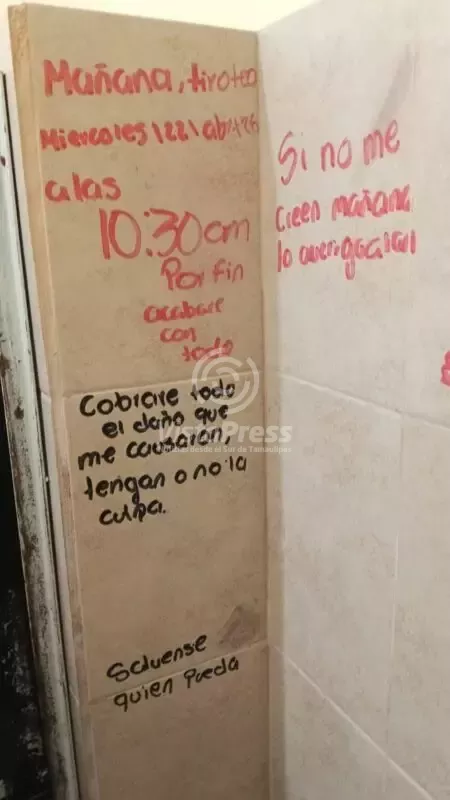 Mañana, tiroteo
Miercoles|22|abr|26
a las
10:30am
Por fin
acabare
con
todo
Cobrare todo
el daño que
me causaron,
tengan o no la
culpa.
Salvense
quien Pueda
Si no me
creen mañana
lo averiguaran
VisorPress
Noticias desde el Sur de Tamaulipas